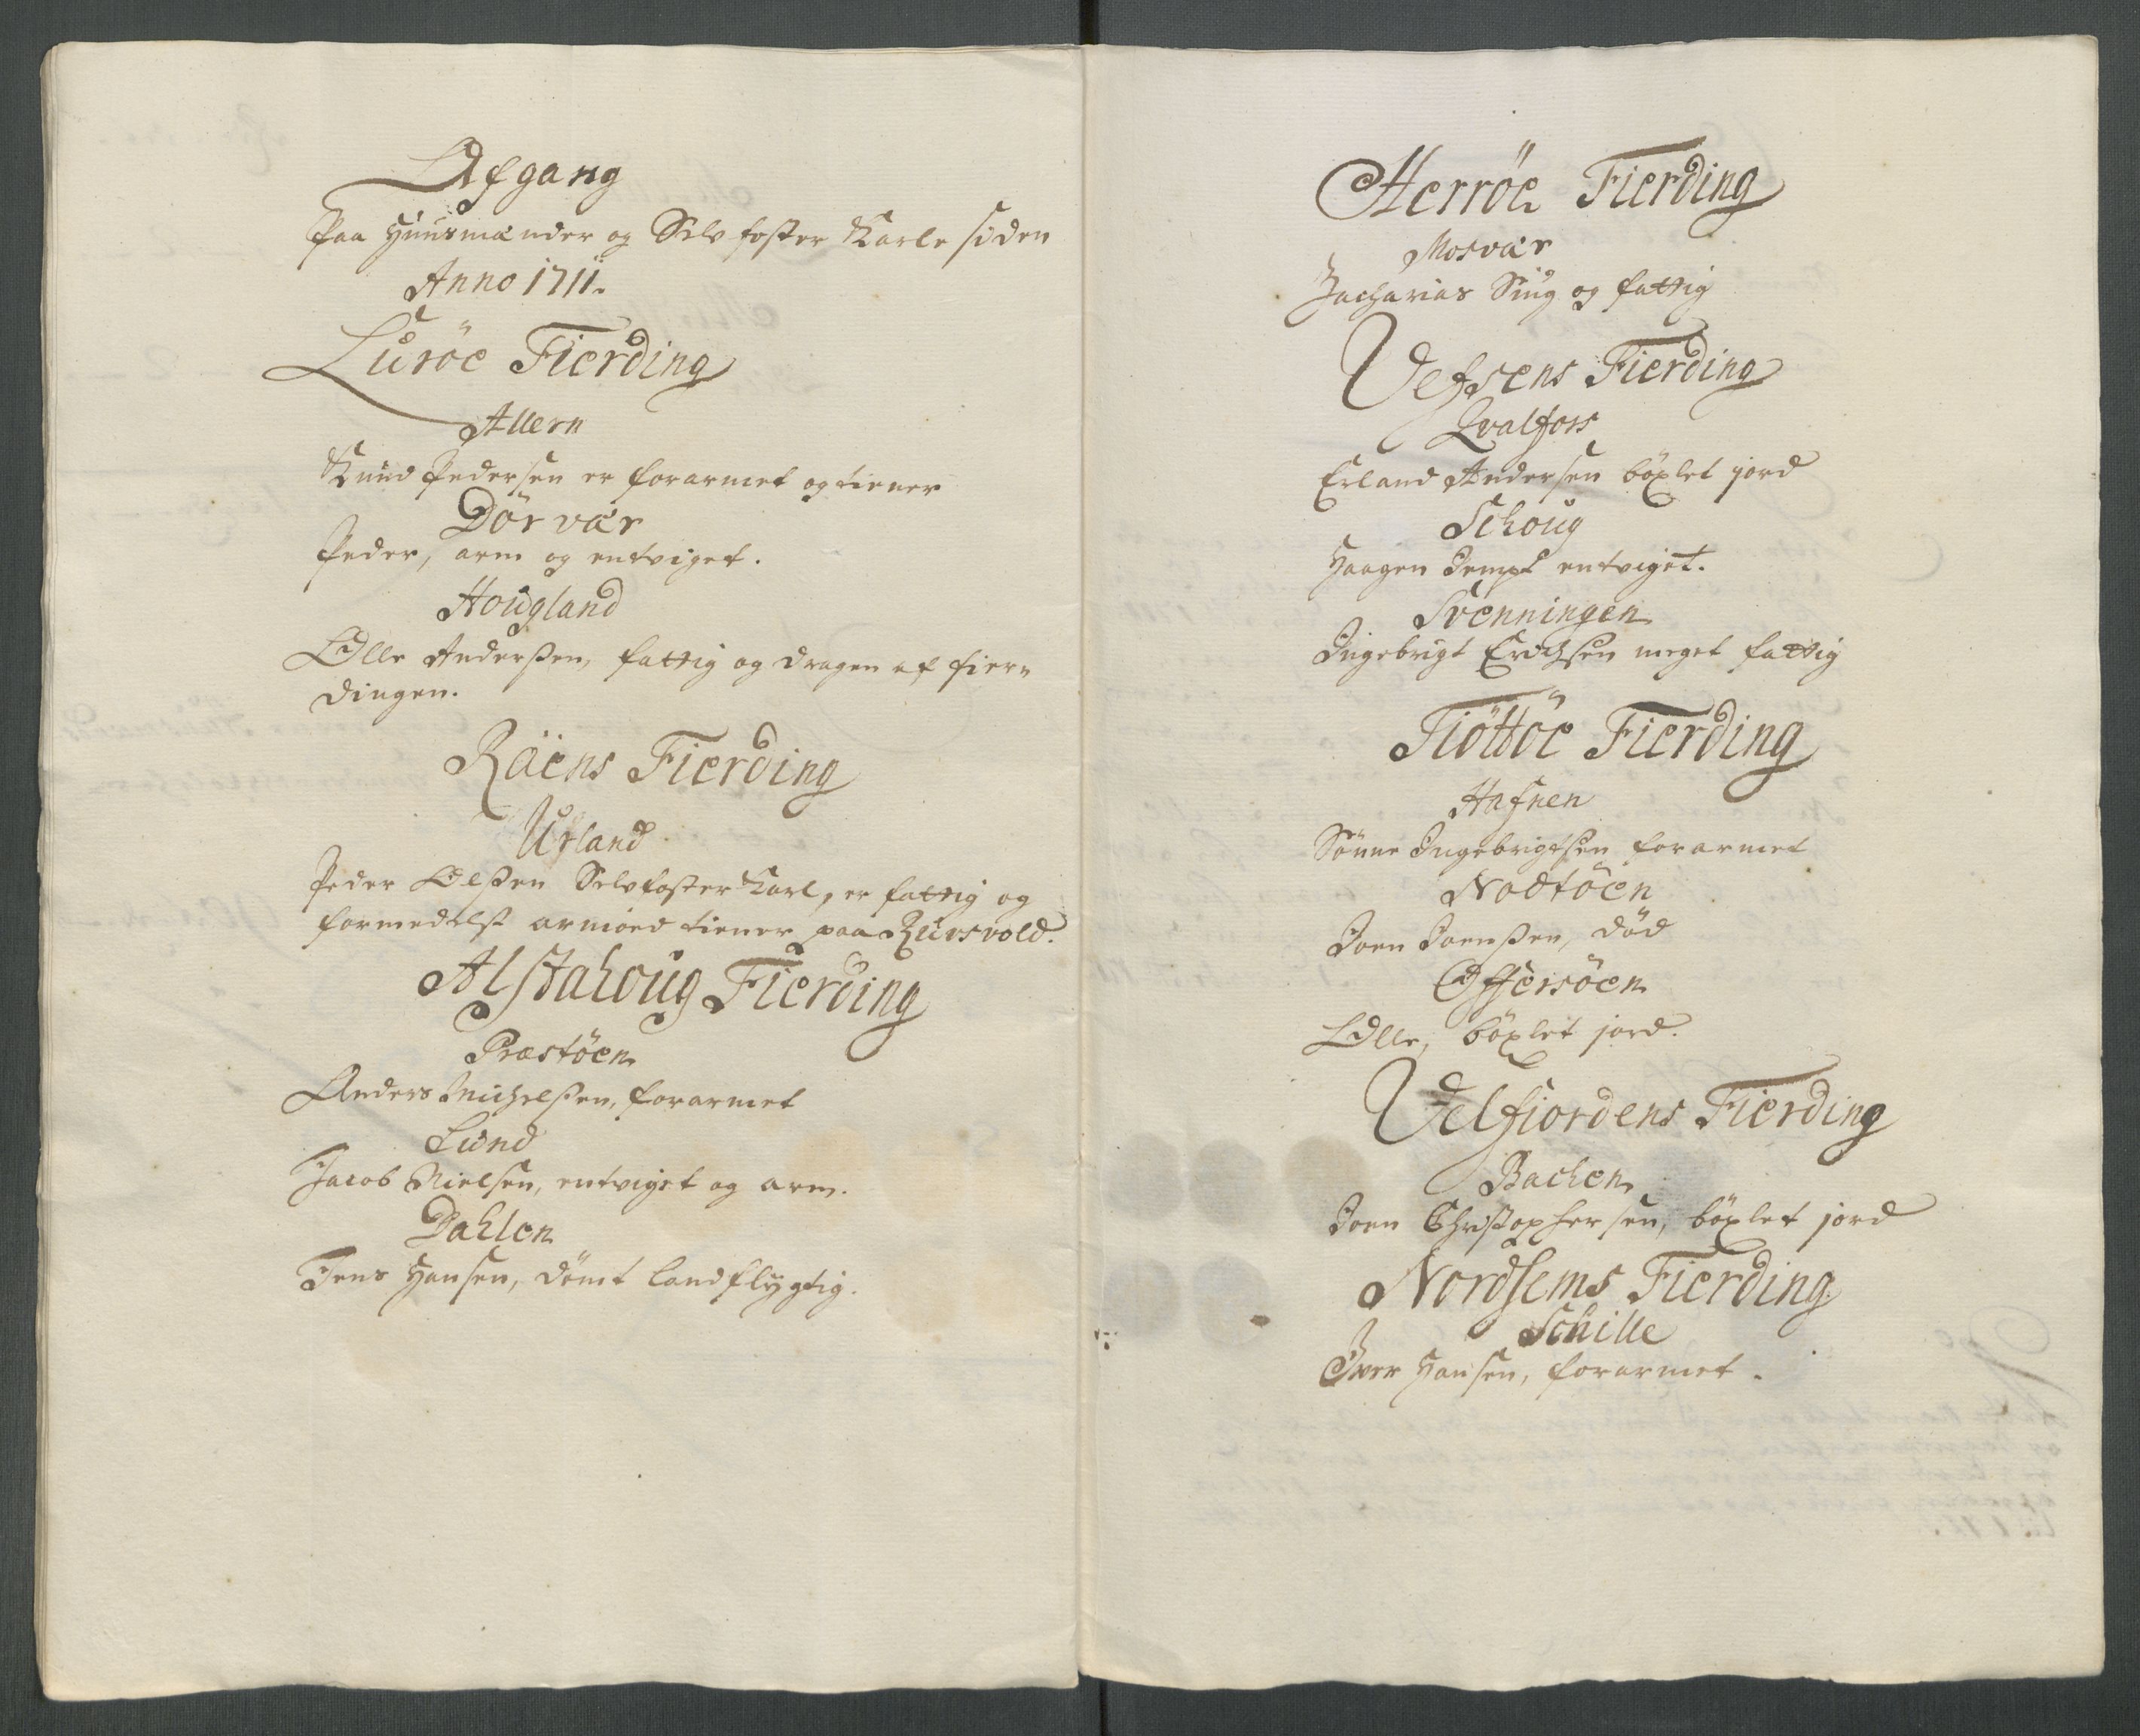 Afgang
Paa Huusmænder og Selv foster Karle siden
Anno 1711.
Lurøe Fierding
Allern
Knud Pedersen er forarmet og tiener
Dørvær
Peder, arm og entviget.
Hougland
Olle Anderssen, fattig og dragen af fier-
dingen.
Raens Fierding
Urland
Peder Olssen Selvfoster Karl, er fattig og
formedelst armoed tiener paa Rusvold.
Alstahoug Fierding
Præstøen
Anders Michelssen, forarmet
Lund
Jacob Nielsen, entviget og arm.
Dahlen
Jens Hansen, dømt landflygtig.
Herrøe Fierding
Mosvær
Zacharias Siug og fattig
Vefsens Fierding
Qvalfors
Erland Andersen bøxlet jord
Schoug
Haagen Jempt entviget.
Svenningen
Ingebrigt Erichsen meget fattig
Tiøttøe Fierding
Hafnen
Sønne Ingebrigtsen forarmet
Nodtøen
Joen Joenssen, død
Offersøen
Olle, bøxlet jord.
Velfiordens Fierding
Bachen
Joen Christophersen, bøxlet jord
Nordsems Fierding
Schille
Iver Hansen, forarmet.